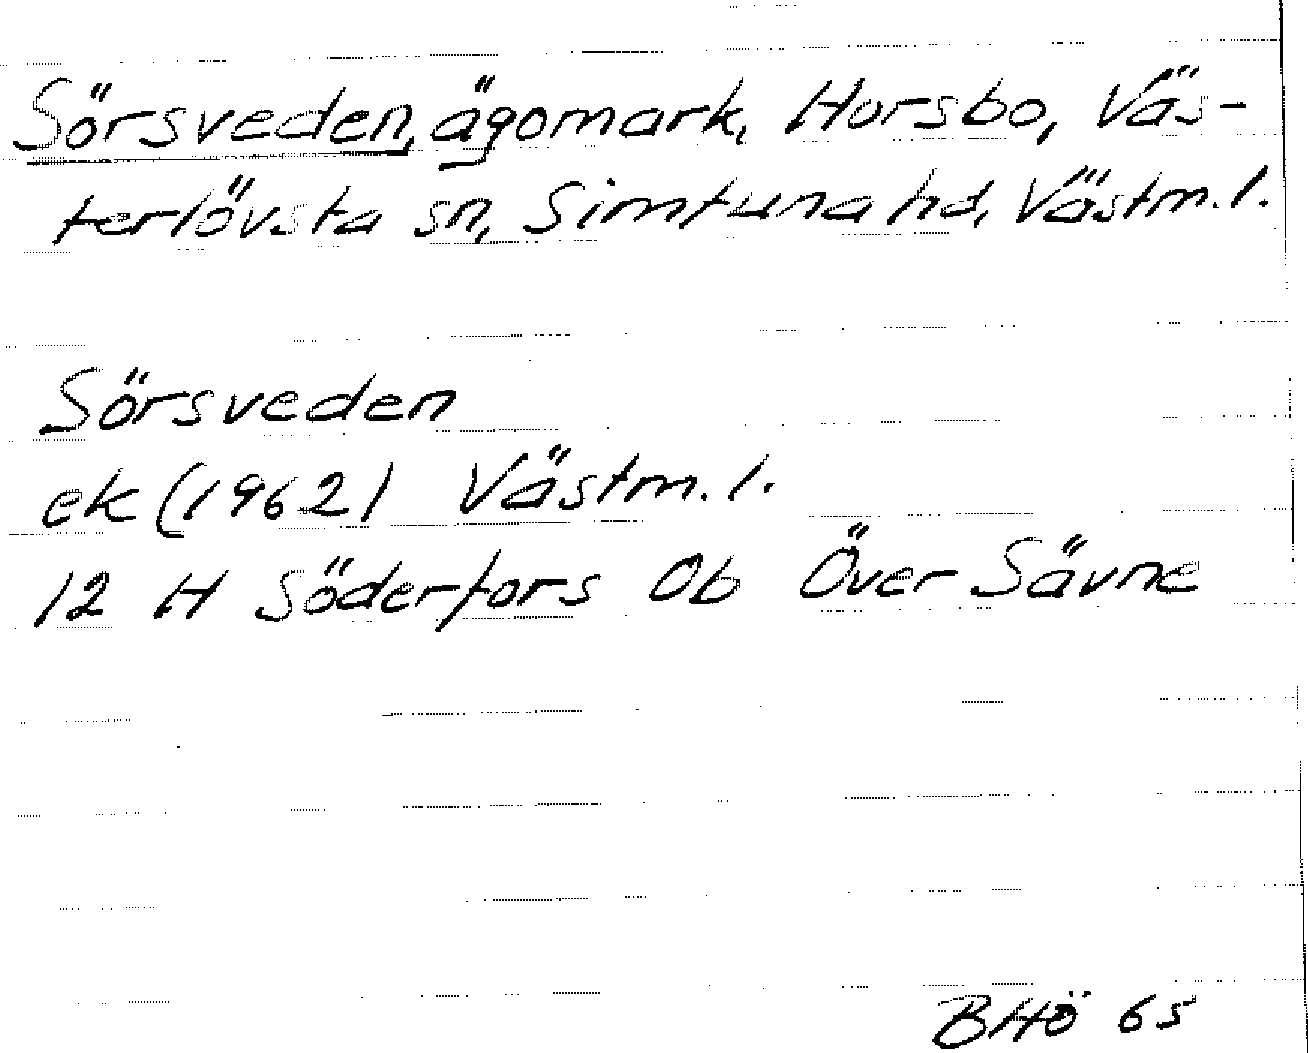 Sörsveden, ägomark, Horsbo, Väs-
terlövsta sn, Simtuna hd, Västm.l.
Sörsveden
ek (1962) Västm.l.
12 H Söderfors 0b Över Sävne
BHö 65